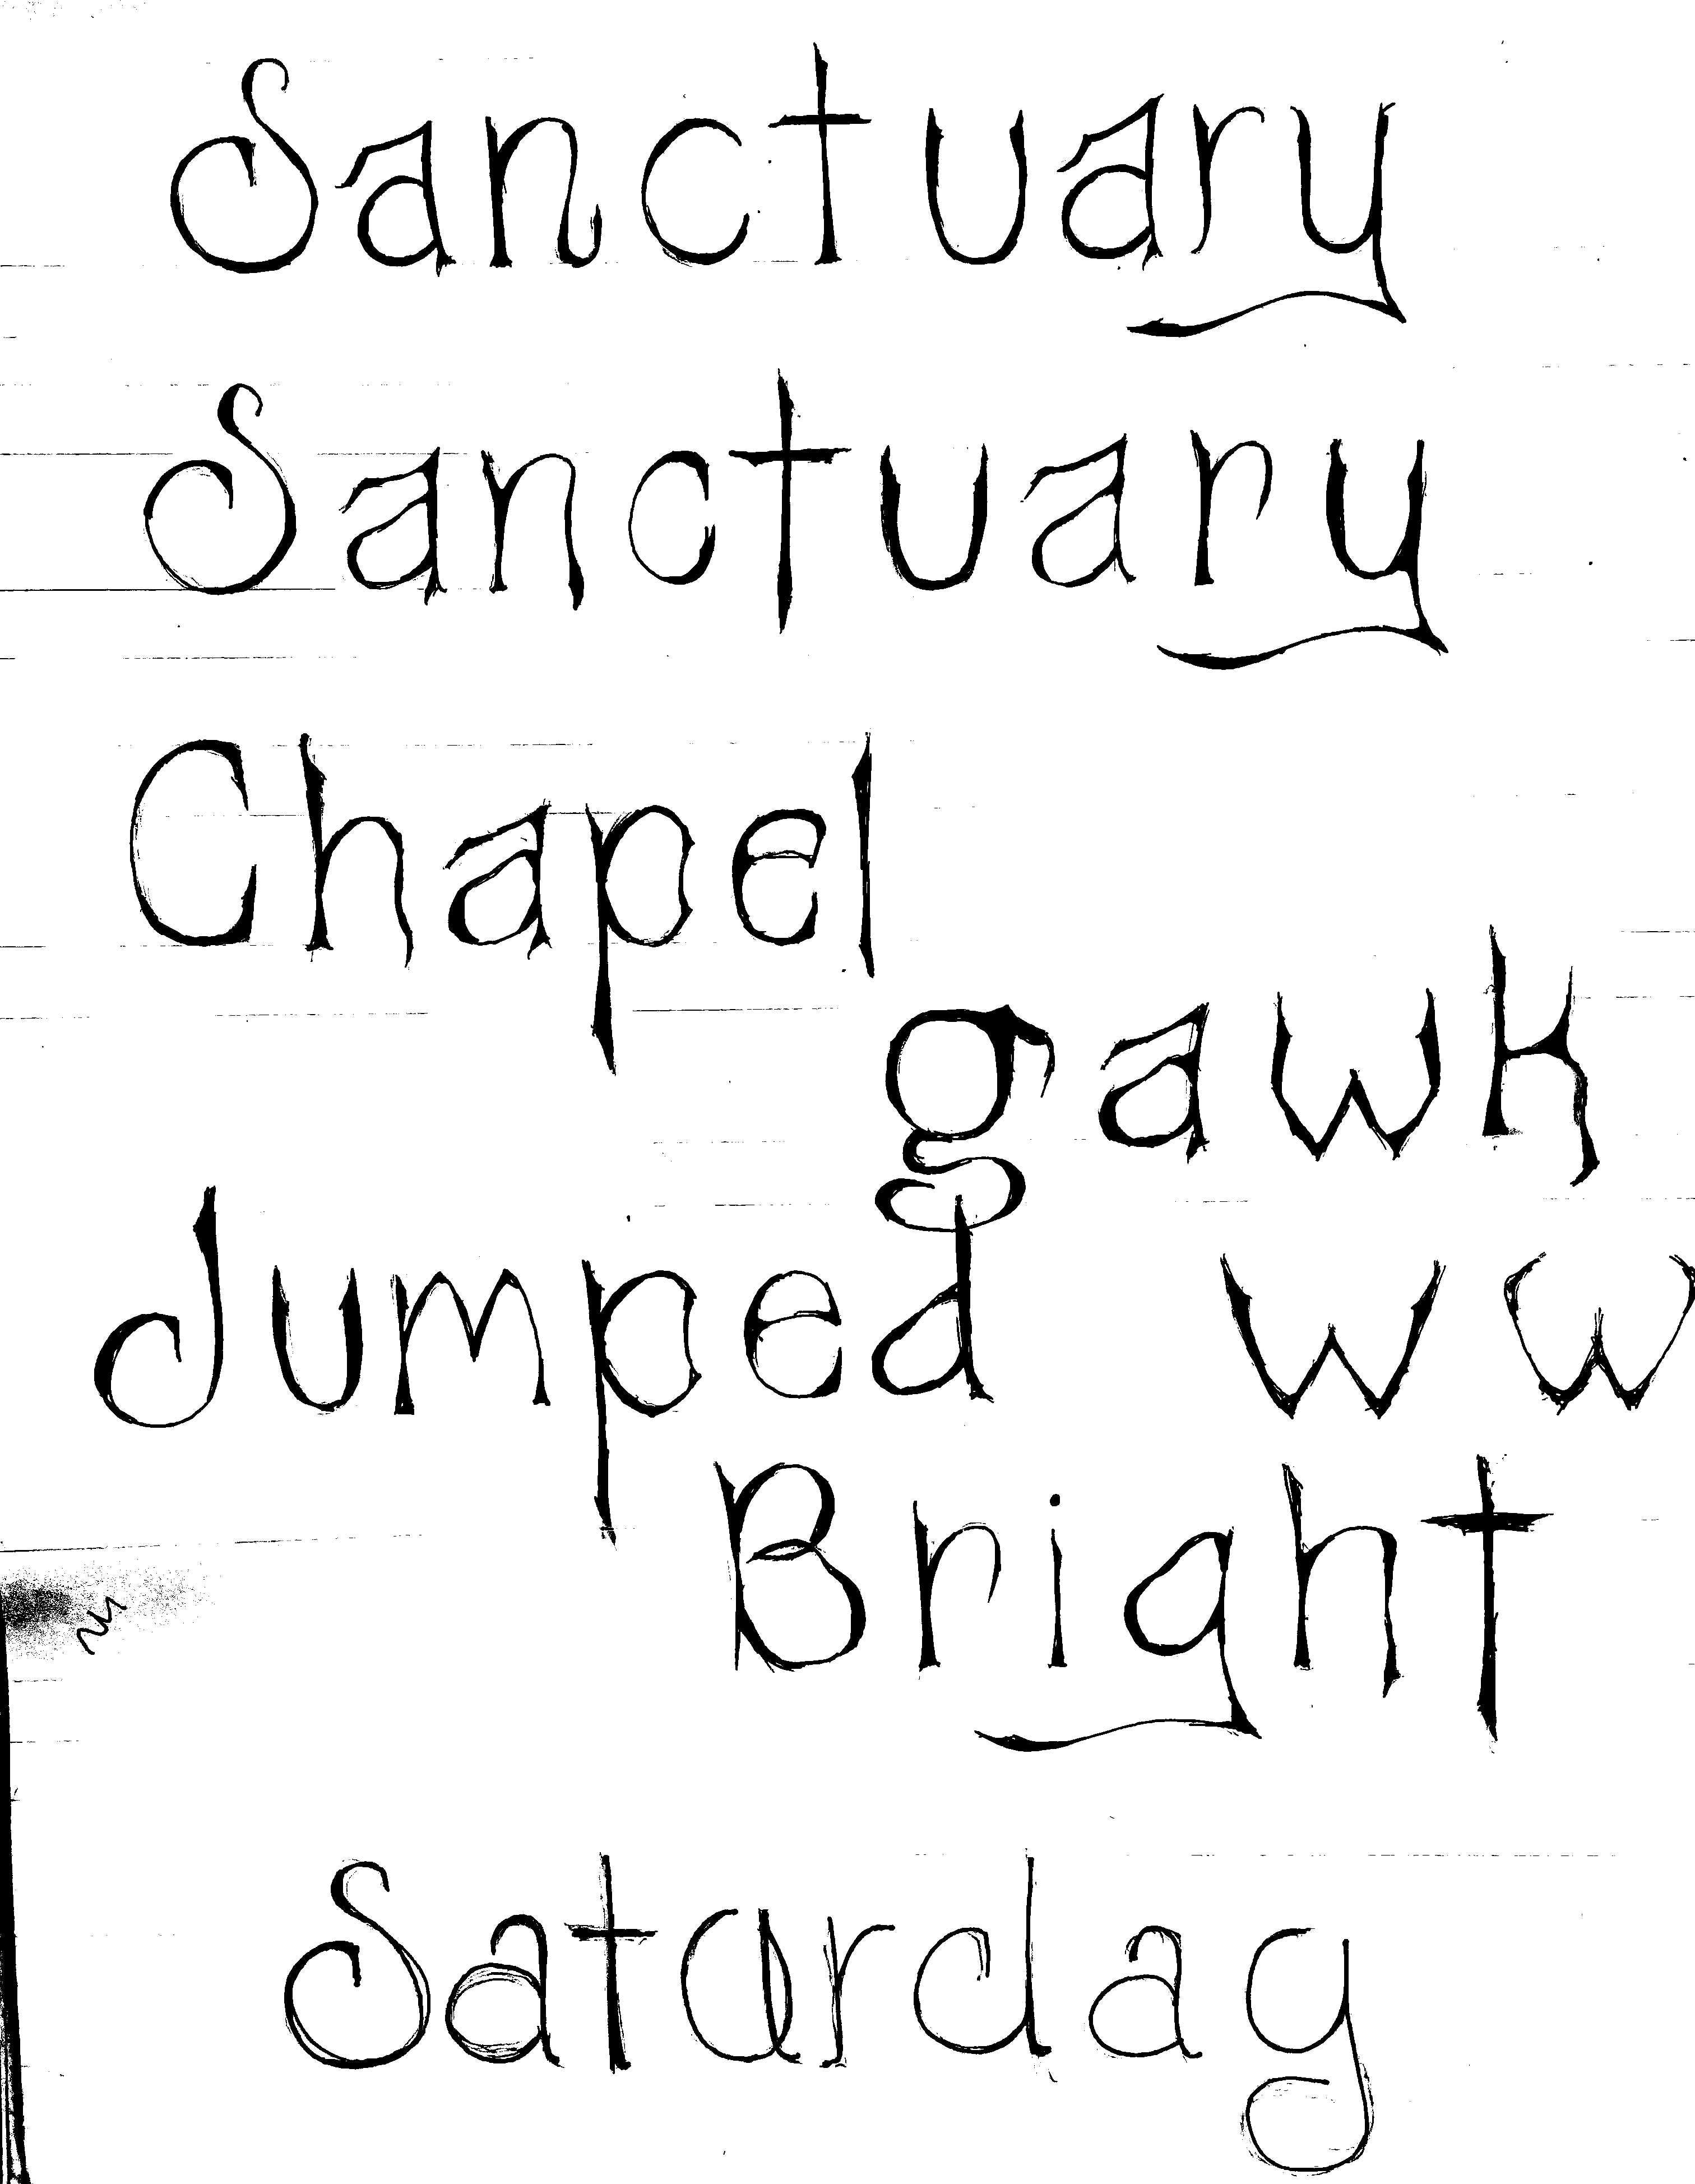 Sanctuary
Sanctuary
Chapel
gawk
Jumped w w
Bright
Saturday